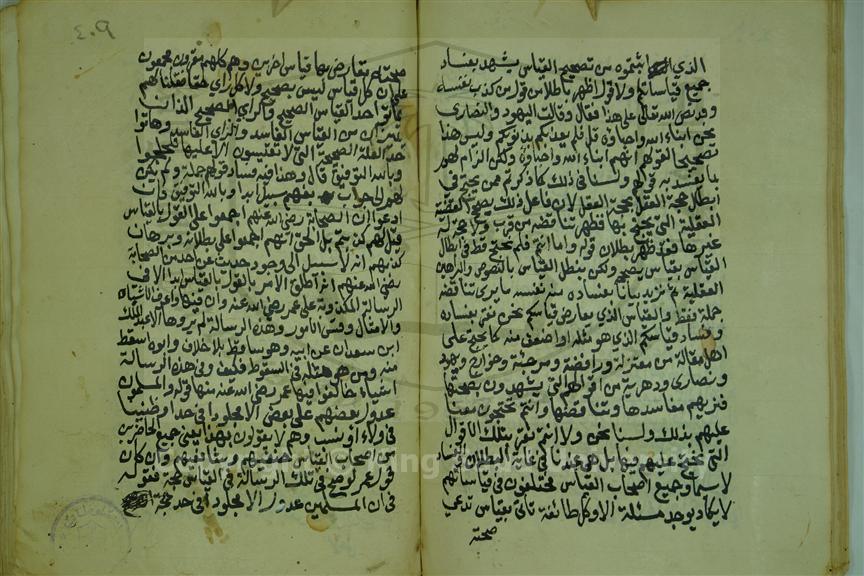 الذي اثبتموه من تصحيح القياس يشهد بفساد
جميع قياساتكم ولا قول اظهر باطلا من قول من كذب نفسه
وقد نص الله تعالى على هذا فقال وقالت اليهود والنصارى
نحن ابناء الله واحباؤه قل فلم يعذبكم بذنوبكم وليس هذا
تصحيحا لقولهم انهم ابناء الله واحباؤه ولكن الزام لهم
ما يفسد به قولهم ولسنا في ذلك كما ذكرتم ممن يحتج في
ابطال حجة العقل بحجة العقل لان فاعل ذلك يصحح القضية
العقلية التي يحتج بها فظهر تناقضه من قرب ولا حجة له
غيرها فقد ظهر بطلان قوله واما نحن فلم نحتج قط في ابطال
القياس بقياس نصححه ولكن نبطل القياس بالنصوص والبراهين
العقلية ثم نزيد بيانا بفساده منه نفسه بان نرى تناقضه
جملة فقط والقياس الذي نعارض قياسكم نحن نقر بفساده
وفساد قياسكم الذي هو مثله او اضعف منه كما نحتج على
اهل مقالة من معتزلة ورافضة ومرجئة وخوارج ويهود
ونصارى ودهرية من اقوالهم التي يشهدون بصحتها
فنريهم تفاسدها وتناقضها وانتم تحتجون معنا
عليهم بذلك ولسنا نحن ولا انتم نقر بتلك الاقوال
التي نحتج عليهم بها بل هي عندنا في غاية البطلان والفساد
لا سيما وجميع اصحاب القياس مختلفون في قياساتهم
لا يكاد يوجد مسئلة الا وكل طائفة تاتي بقياس تدعي
صحته
٤٠٩
صحته تعارض به قياس اخرين وهم كلهم مقرون مجمعون
على ان كل قياس ليس بصحيح ولا كل راي حقا فقلنا لهم
هاتوا حد القياس الصحيح والراي الصحيح الذان
يتميزان من القياس الفاسد والراي الفاسد وهاتوا
حد العلة الصحيحة التي لا تقيسون الا عليها فلجلجوا
وبالله التوفيق قال وهذا فيه فساد قولهم جملة ولم يكن
لهم الى جواب يفهم سبيل ابدا وبالله التوفيق فان
ادعوا ان الصحابة رضي الله عنهم اجمعوا على القول بالقياس
قيل لهم كذبتم بل الحق انهم اجمعوا على بطلانه وبرهان
كذبهم انه لا سبيل الى وجود حديث عن احد من الصحابة
رضي الله عنهم انه اطلق الامر بالقول بالقياس ابدا الا في
الرسالة المكذوبة على عمر رضي الله عنه وان فيها واعرف الاشباه
والامثال وقس الامور وهذه الرسالة لم يروها الا عبد الملك
ابن معدان عن ابيه وهو ساقط بلا خلاف وابوه اسقط
منه ومن هو مثله في السقوط فكيف وفي هذه الرسالة
اشياء خالفوا فيها عمر رضي الله عنه منها قوله والمسلمون
عدول بعضهم على بعض الا مجلودا في حد او ظنينا
في ولاء او نسب وهم لا يقولون بهذا يعني جميع الحاضرين
من اصحاب القياس حنفيهم وشافعيهم وان كان
قول عمر لو صح في تلك الرسالة في القياس حجة فقوله
في ان المسلمين عدول الا مجلودا في حد حجة